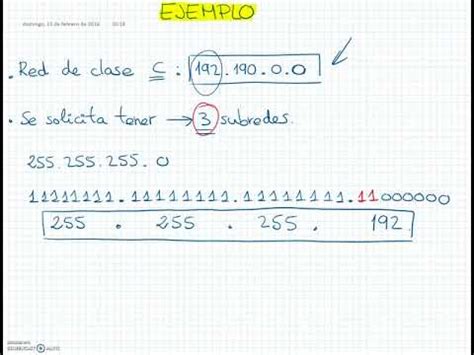 EJEMPLO
domingo, 21 de febrero de 2016 20:18
. Red de clase C : 192.190.0.0
. Se solicita tener → 3 subredes.
255.255.255.0
11111111.11111111.11111111.11000000
255 . 255 . 255 . 192